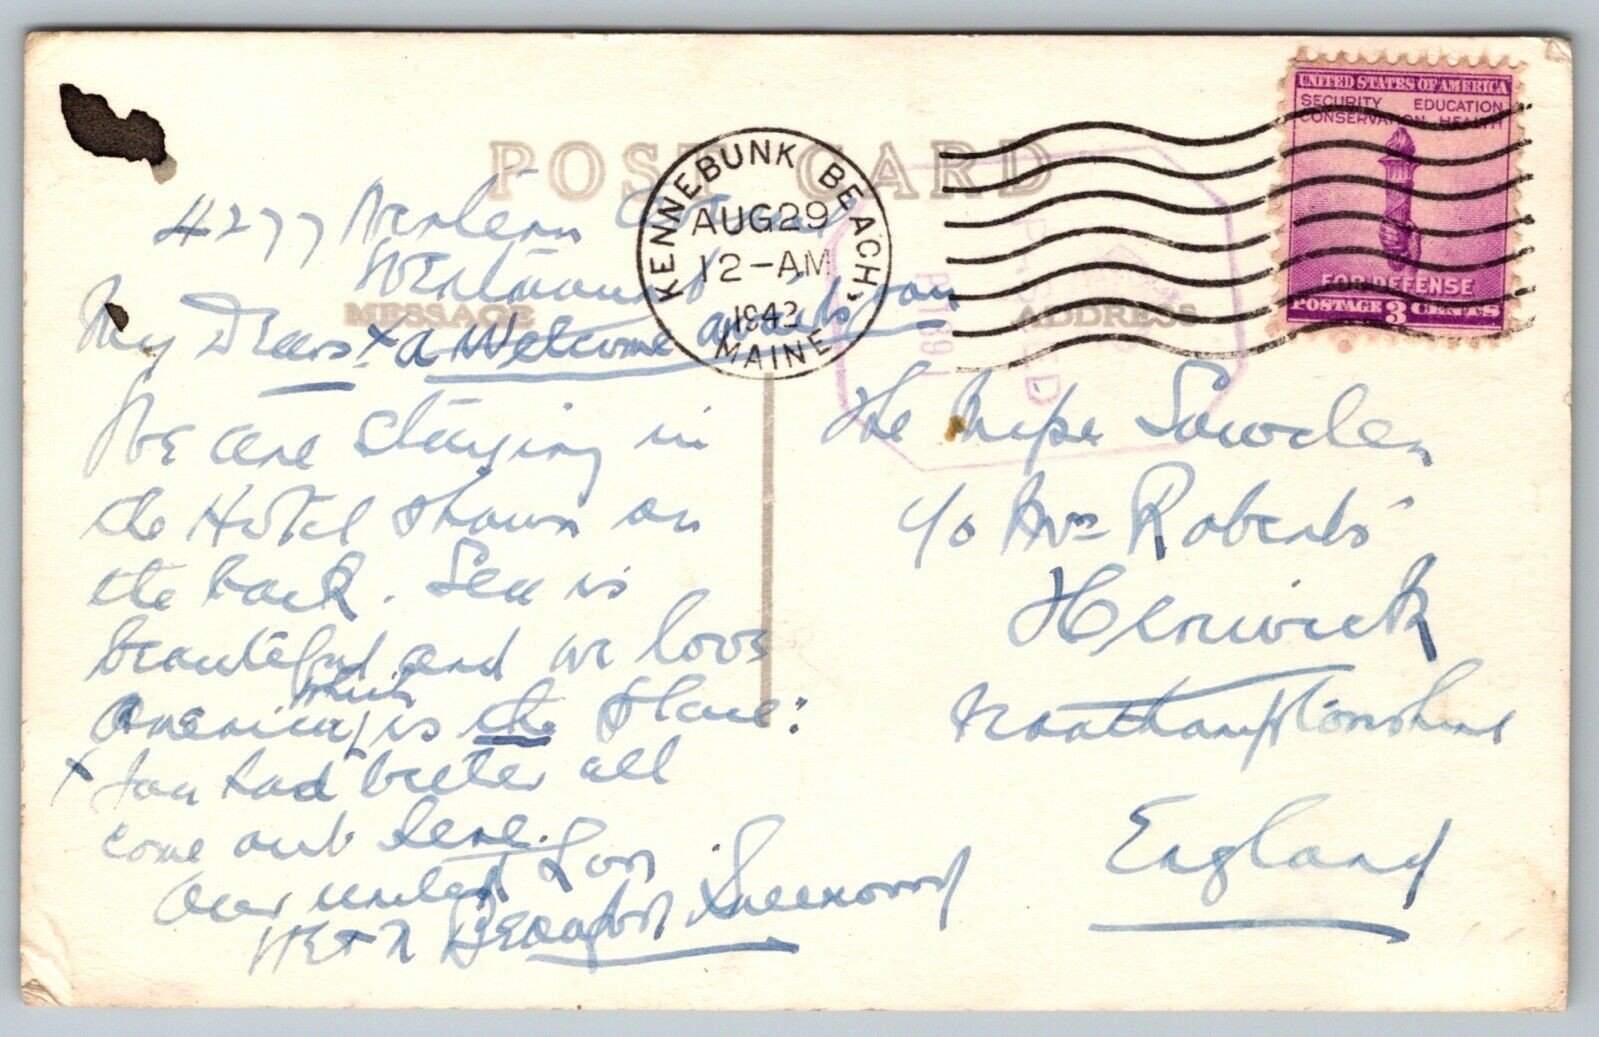 POST CARD
KENNEBUNK BEACH, MAINE
AUG 29
12-AM
1942
UNITED STATES OF AMERICA
SECURITY EDUCATION
CONSERVATION HEALTH
FOR DEFENSE
POSTAGE 3 CENTS
MESSAGE
ADDRESS
4277
Westmount
My Dears x a Welcome awaits you
We are staying in
the Hotel shown on
the back. Sea is
beautiful and we love
America, which is the place:
x You had better all
come out here.
Our united Love
The Sowden
c/o Mrs Roberts
Northamptonshire
England